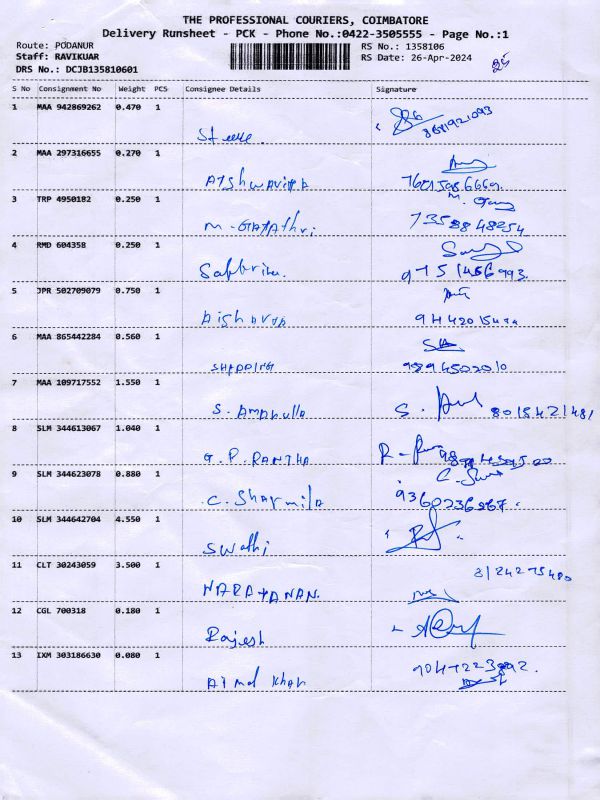 THE PROFESSIONAL COURIERS, COIMBATORE
Delivery Runsheet - PCK - Phone No.:0422-3505555 - Page No.:1
Route: PODANUR
RS No.: 1358106
Staff: RAVIKUAR
RS Date: 26-Apr-2024
DRS No.: DCJB135810601
S No Consignment No Weight PCS Consignee Details Signature
1 MAA 942869262 0.470 1
2 MAA 297316655 0.270 1
Aishwariya
3 TRP 4950182 0.250 1
M. Gayathri 7358848254
4 RMD 604358 0.250 1
9751456993
5 JPR 502709079 0.750 1
Aishwarya
6 MAA 865442284 0.560 1
9894502010
7 MAA 109717552 1.550 1
S. Amanulla 8015421481
8 SLM 344613067 1.040 1
G. P. RANTHA
9 SLM 344623078 0.880 1
C. Sharmila 9360236867
10 SLM 344642704 4.550 1
Swathi
11 CLT 30243059 3.500 1
NARAYANAN. 8124275480
12 CGL 700318 0.180 1
Rajesh
13 IXM 303186630 0.080 1
Ajmal Khan